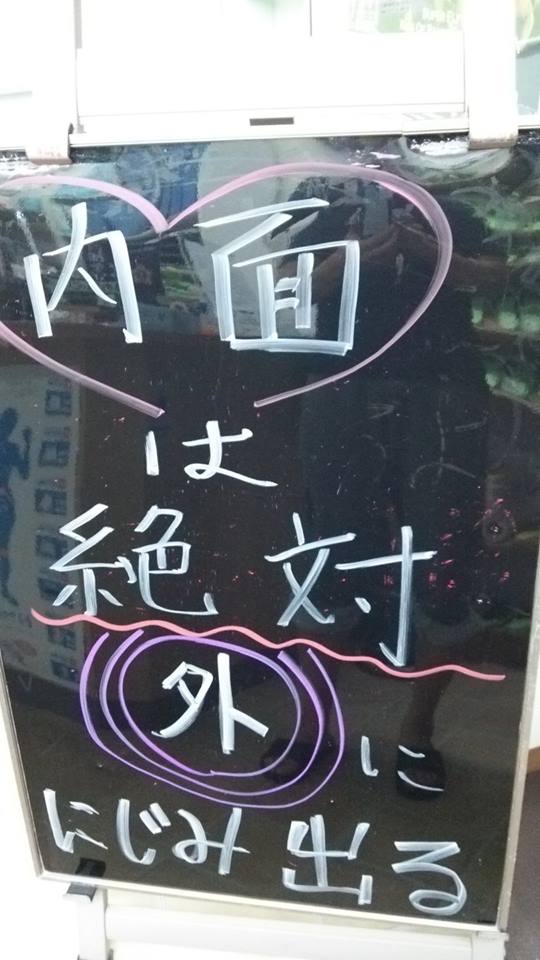 内面
は
絶対
外に
にじみ出る